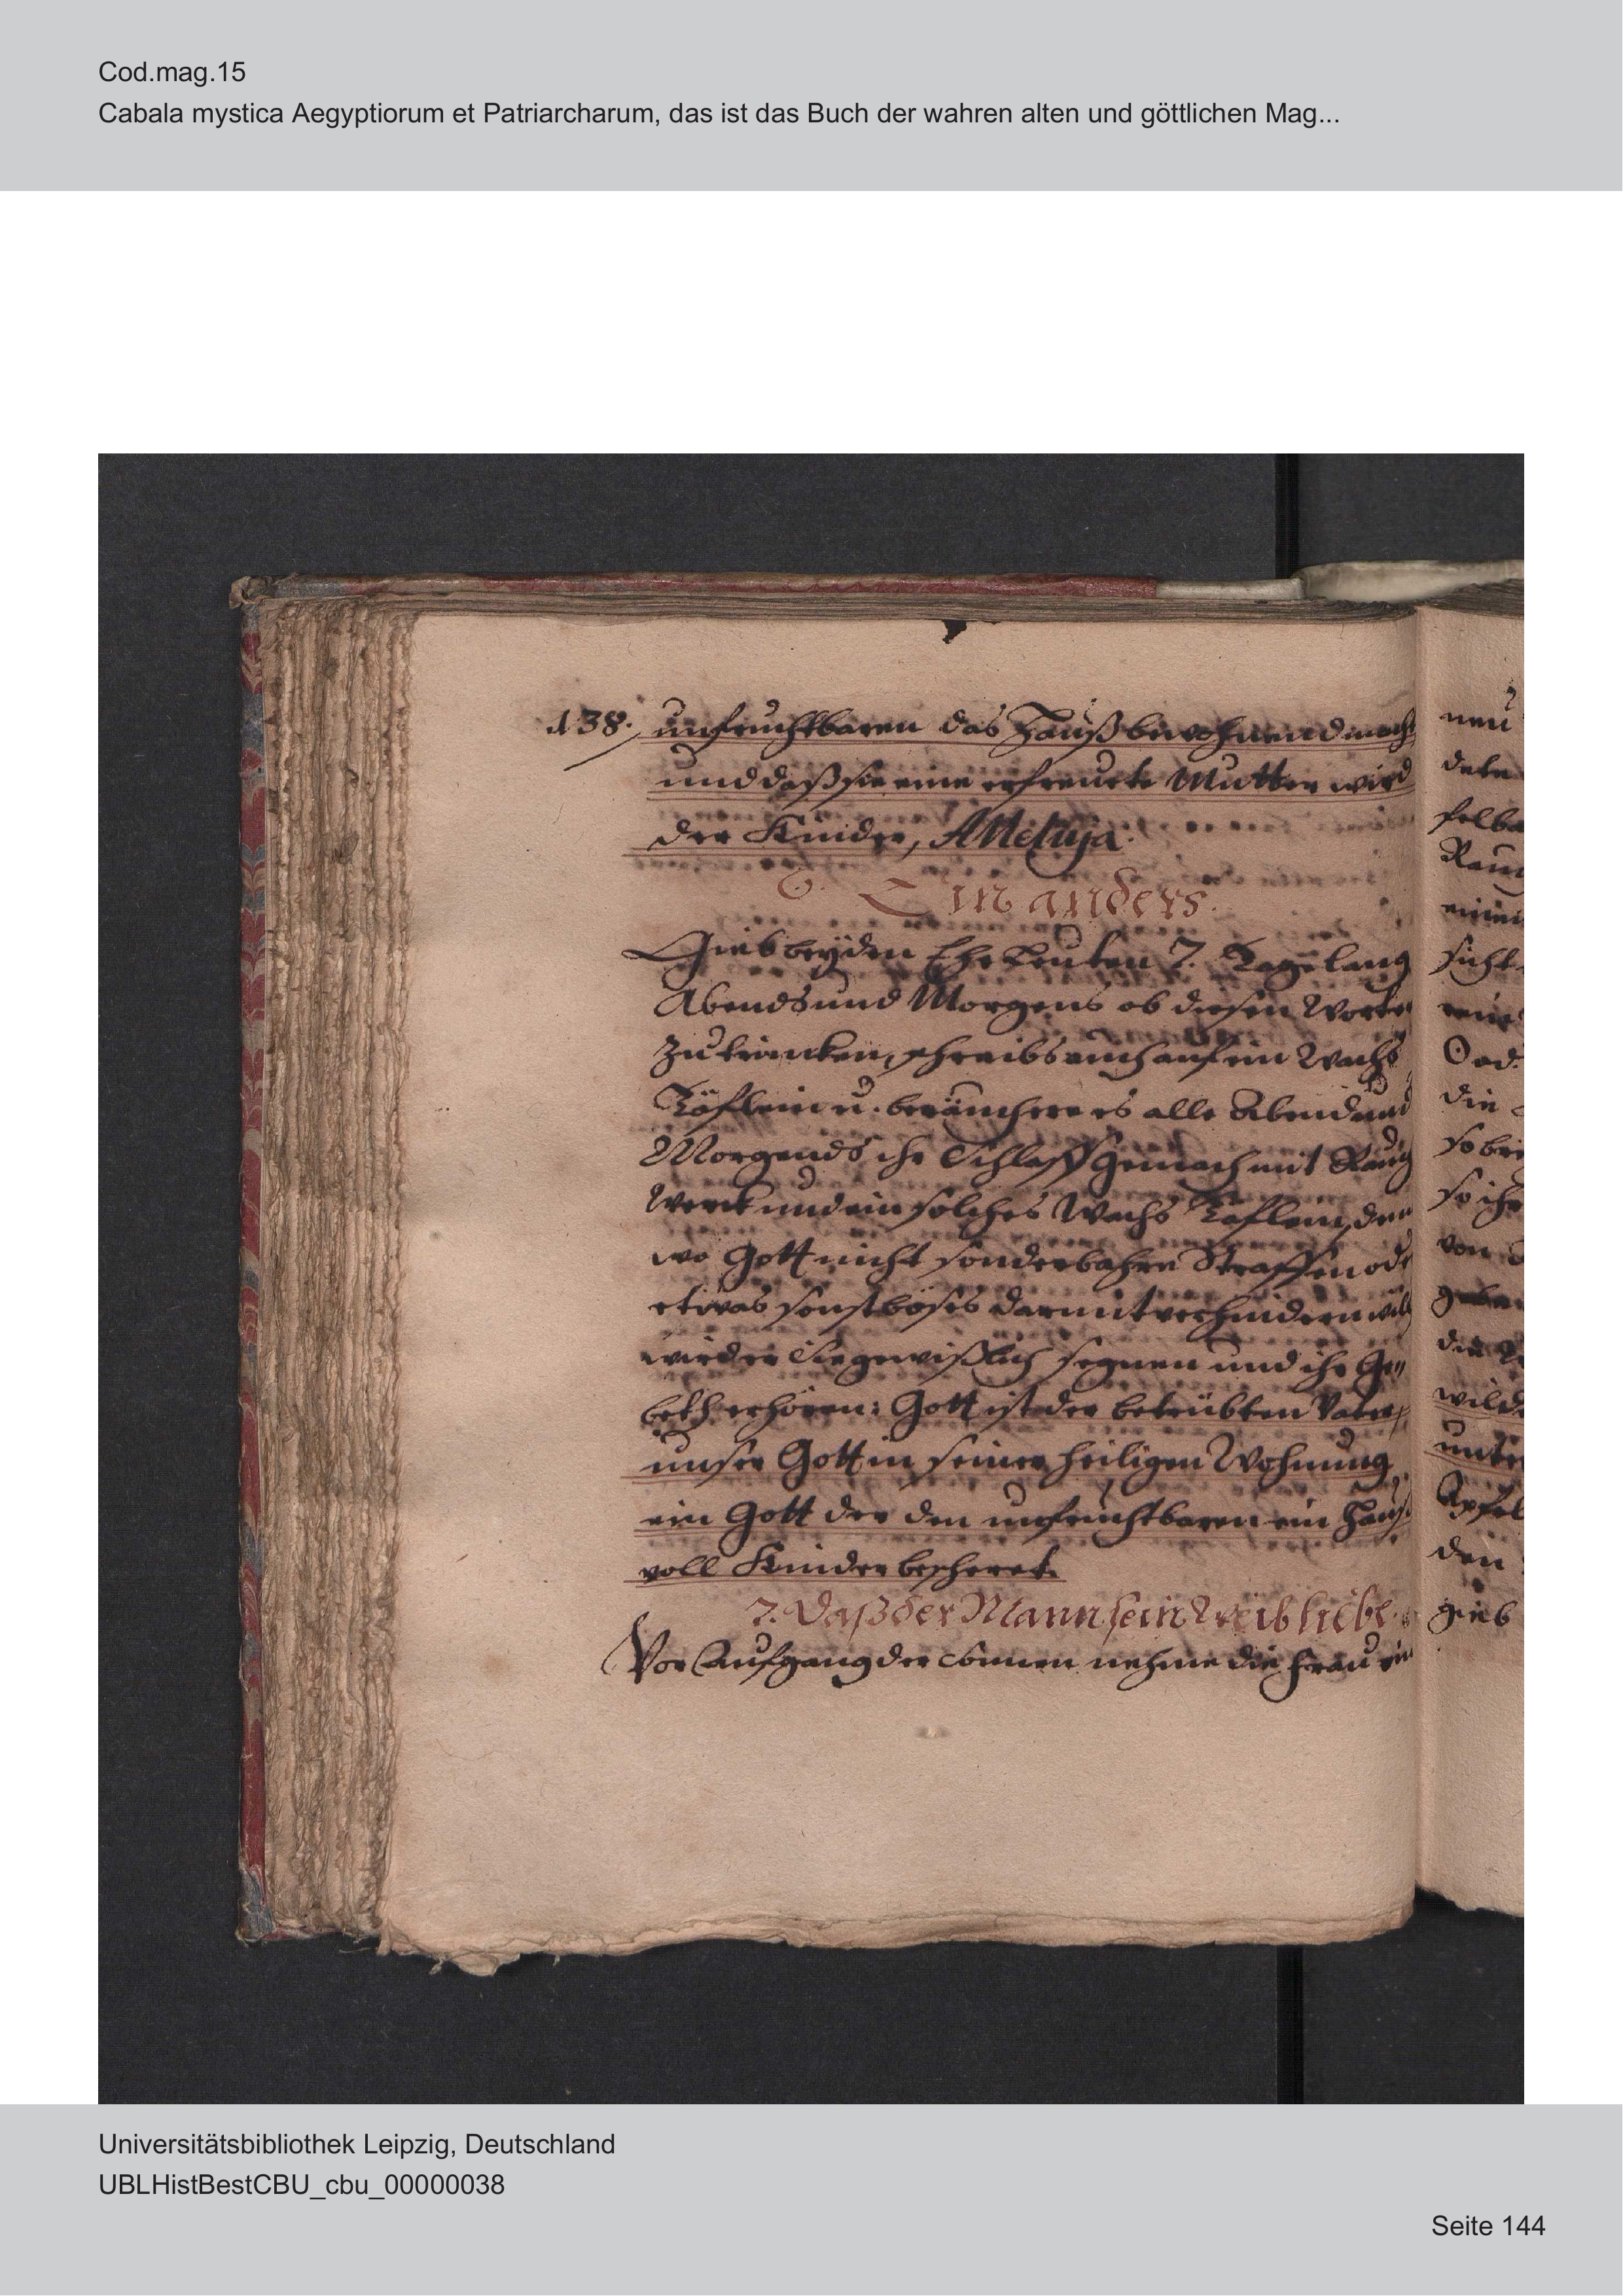 Cod.mag.15
Cabala mystica Aegyptiorum et Patriarcharum, das ist das Buch der wahren alten und göttlichen Mag...
138. unfruchtbaren das Hauß bewohnend macht
und daß sie eine erfreute Mutter wird
der Kinder, Alleluja.
6. Ein anders.
Gieb beyden Ehe Leuten 7. Tage lang
Abends und Morgens ob diesen Worten
zu trincken, schreibs auch auf ein Wachs
Täflein u. beräuchere es alle Abend und
Morgends ihr Schlaff Gemach mit Rauch
Werck und ein solches Wachs Täflein, den
wo Gott nicht sonderbahre Straffen oder
etwas sonst böses darmit verhindern will
wird er Sie gewißlich segnen und ihr Ge„
beth erhören: Gott ist der betrübten Vater,
unser Gott in seiner heiligen Wohnung
ein Gott der den unfruchtbaren ein Hauß
voll Kinder bescheret.
7. Daß der Mann sein Weib liebe.
Vor Aufgang der Sonnen nehme die Frau ein
neu
Rauch
Ood.
die
so bri
so ihr
von
wilde
unter
Apfel
den
gieb
Universitätsbibliothek Leipzig, Deutschland
UBLHistBestCBU_cbu_00000038
Seite 144